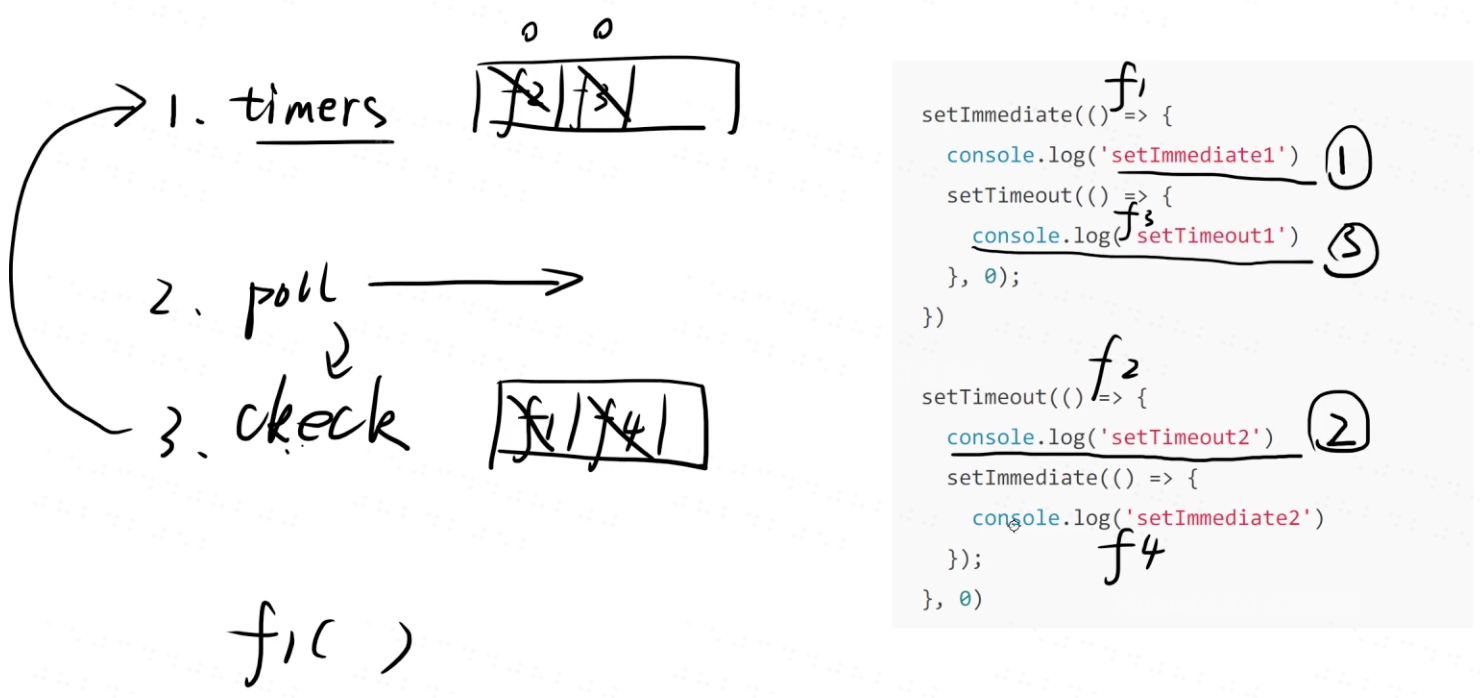 0 0
1. timers f2 f3
2. poll
3. check f1 f4
f1( )
f1
setImmediate(() => {
console.log('setImmediate1') ①
setTimeout(() => {
f3
console.log('setTimeout1') ③
}, 0);
})
f2
setTimeout(() => {
console.log('setTimeout2') ②
setImmediate(() => {
console.log('setImmediate2')
f4
});
}, 0)